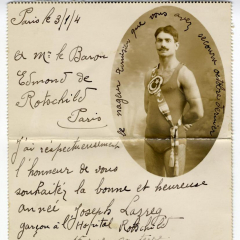 Paris le 3/1/4
A Mr le Baron
Edmond de
Rotschild
Paris
J'ai respectueusement
l'honneur de vous
souhaitez la bonne et heureuse
année Joseph Lazreg
garçon à l'Hopital Rotschild
le nageur que vous avez